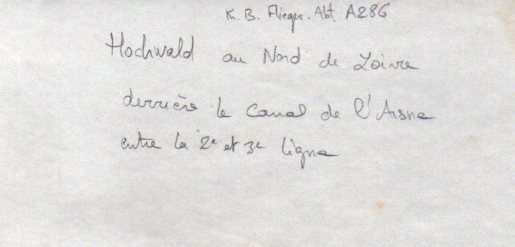 K. B. Flieger. Abt. A286
Hochwald au Nord de Loivre
derrière le Canal de l'Aisne
entre la 2e et 3e ligne